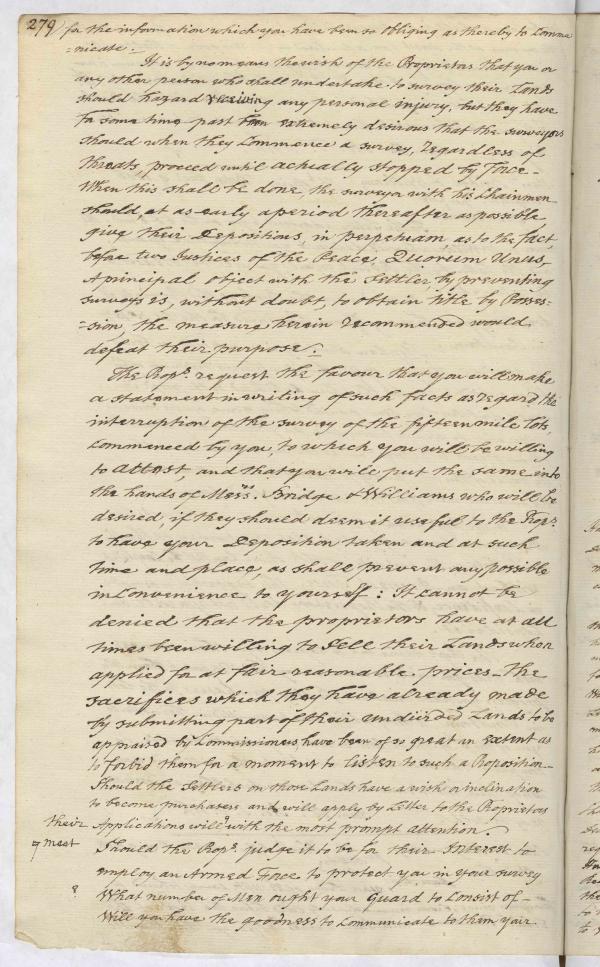 279 for the information which you have been so obliging as thereby to Commu
=nicate.
It is by no means the wish of the Proprietors that you or
any other person who shall undertake to survey their Lands
should hazard receiving any personal injury, but they have
for some time past been extremely desirous that the surveyors
should when they Commence a survey, regardless of
threats, proceed until actually stopped by Force -
When this shall be done, the surveyor with his Chainmen
should, at as early a period thereafter as possible
give their Depositions, in perpetuam, as to the fact,
before two Justices of the Peace, Quorum Unus,
A principal object with the Settler, by preventing
surveys is, without doubt, to obtain title by Posses=
=sion, the measure herein recommended would
defeat their purpose.
The Props. request the favour that you will make
a statement in writing of such facts as regard the
interruption of the survey of the fifteen mile lots,
Commenced by you, to which you will be willing
to attest, and that you will put the same into
the hands of Messrs. Bridge & Williams who will be
desired, if they should deem it useful to the Props.
to have your Deposition taken and at such
time and place, as shall prevent any possible
inconvenience to yourself: It cannot be
denied that the proprietors have at all
times been willing to sell their Lands when
applied for at fair reasonable prices - the
sacrifices which they have already made
by submitting part of their undivided Lands to be
appraised by Commissioners have been of so great an extent as
to forbid them for a moment to listen to such a Proposition -
Should the Settlers on those Lands have a wish or inclination
to become purchasers and will apply by Letter to the Proprietors
their Applications will meet with the most prompt attention.
Should the Props. judge it to be for their Interest to
employ an Armed Force to protect you in your survey
? What number of Men ought your Guard to Consist of -
Will you have the goodness to Communicate to them your